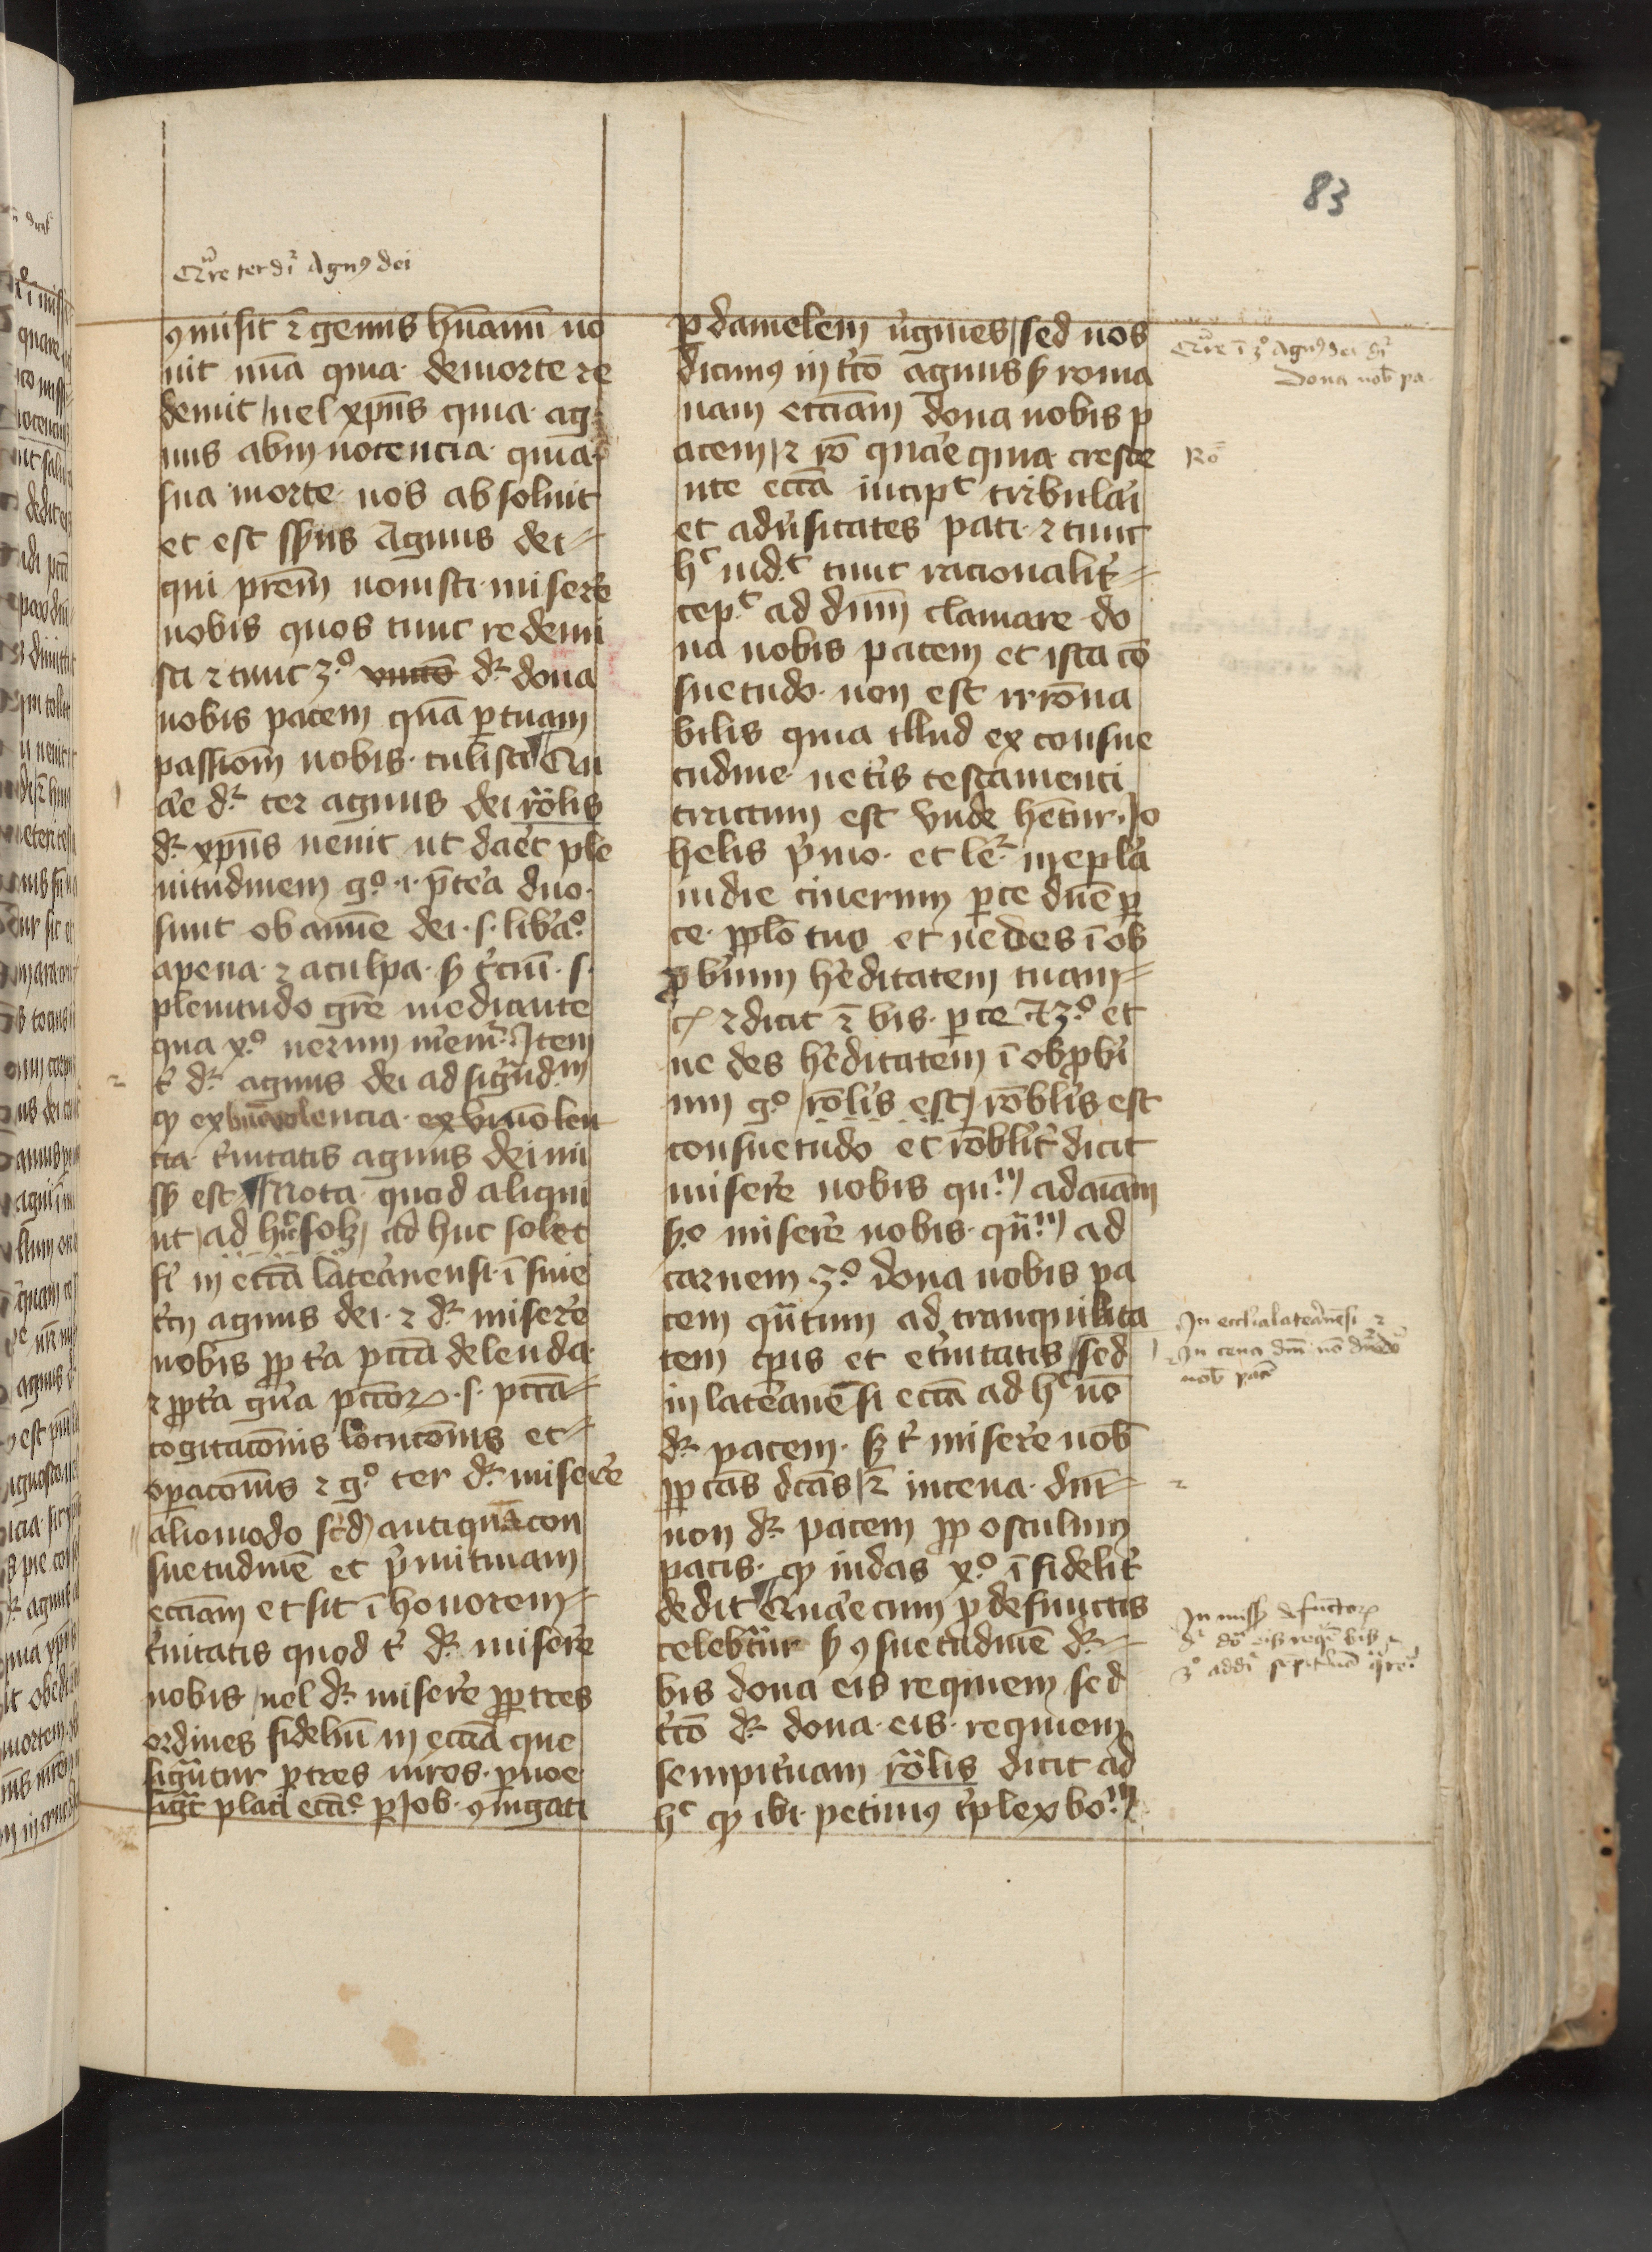 83
Qu̅re ter dr̅ Agnꝯ dei
ꝯmisit ⁊ genus hu̅anu̅ no
uit ni̅a quia de morte re
demit uel xpi̅us quia ag
nus ab in nocencia quia
sua morte nos absoluit
et est sensus Agnus dei
qui prem̅ nouisti misere̅
nobis quos tunc redemi
sti ⁊ tunc 3º dr̅ dona
nobis pacem qua̅ ꝑ tuam
passiom̅ nobis tulisti Qu
are dr̅ ter agnus dei ro̅lis
dr̅ xpi̅us uenit ut daret ple
nitudinem gº i p̅tea duo
sunt ob amne dei s liba̅º
a pena ⁊ a culpa sꝫ t̅ciu̅ s
plenitudo gr̅e mediante
qua xº uerum Item
t̅ dr̅ agnus dei ad signd̅m
ꝙ ex beniuolencia ex beniuolen
cia t̅nitatis agnus dei mi
ssꝰ est Nota quod aliqui
ut ad huc solꝫ ad huc solet
fi̅ in ecc̅a latera̅nensi i̅ fine
t̅cij agnus dei ⁊ dr̅ misere̅
nobis ꝓp t̅a pcc̅a delenda
⁊ ꝓpt̅a gn̅a pcc̅oꝝ s pcc̅a
cogitaco̅nis locuco̅nis et
oꝑaco̅nis ⁊ gº ter dr̅ misere̅
alio modo scd̅m antiqua̅ con
suetudine̅ et p̅mitiuam
ecc̅iam et sit i̅ honorem
t̅nitatis quod t̅ dr̅ misere̅
nobis uel dr̅ misere̅ ꝓp tres
ordines fideliu̅ in ecc̅ia que
sign̅tur ꝑ tres uiros ꝑ noe
sigt̅ p̅lati ecc̅ie ꝑ Job ꝯiugati
ꝑ danielem u̅gines sed nos
dicimꝯ in t̅co̅ agnus sꝫ roma
nam ecc̅iam dona nobis p
acem ⁊ ro̅ quare quia cresce
nte ecc̅a incipᵗ tribulari
et adu̅sitates pati ⁊ tunc
hᶜ tunc racionalit̅
cepᵗ ad dnm̅ clamare do
na nobis pacem et ista co̅
suetudo non est irro̅na
bilis quia illud ex consue
tudine uet̅is testamenti
tractum est vnde hetur Jo
helis p̅mo et le̅ in epl̅a
in die cinerum ꝑce dn̅e ꝑ
ce ꝓplo̅ tuo et ne des i̅ ob
ꝓb̅ium he̅ditatem tuam
⁊ dicit ⁊ bis ꝑce ⁊ 3º et
ne des he̅ditatem i̅ obꝓb̅i
um gº ro̅lis est ro̅blis est
consuetudo et ro̅blit̅ dicit
misere̅ nobis qu̅m ad ai̅am
sꝫo misere̅ nobis qu̅m ad
carnem 3º dona nobis pa
cem qu̅tum ad tranquilita
tem cp̅is et et̅nitatis sed
in latera̅nensi ecc̅a ad hᶜ no̅
dr̅ pacem sꝫ t̅ misere̅ nob̅
ꝓp cas̅ dc̅as ⁊ in cena dni̅
non dr̅ pacem ꝓp osculum
pacis ꝙ iudas xº i̅fidelit̅
dedit Quare cum ꝓ defunctis
celebratur sꝫ ꝯsuetudine̅ dr̅
bis dona eis requiem sed
t̅co̅ dr̅ dona eis requiem
sempit̅nam ro̅lis dicit ad
hᶜ ꝙ ibi petimꝯ t̅plex bo̅m
Qu̅re i̅ 3º Agnꝯ dei dr̅
Dona nob̅ pa
Ro̅
In ecclesia latera̅ne̅si ⁊
In cena dni̅ no̅
nob̅ pace̅
In miss defu̅ctoꝝ
dr̅ do̅ eis requie̅ bis
3º addr̅ sempit̅na̅